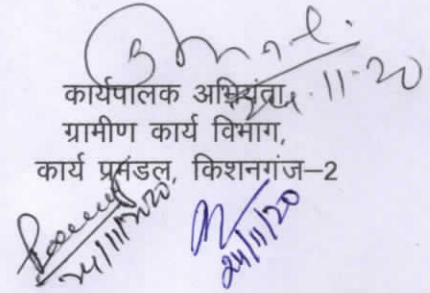 24.11.20
कार्यपालक अभियंता,
ग्रामीण कार्य विभाग,
कार्य प्रमंडल, किशनगंज–2
24/11/2020
24/11/20